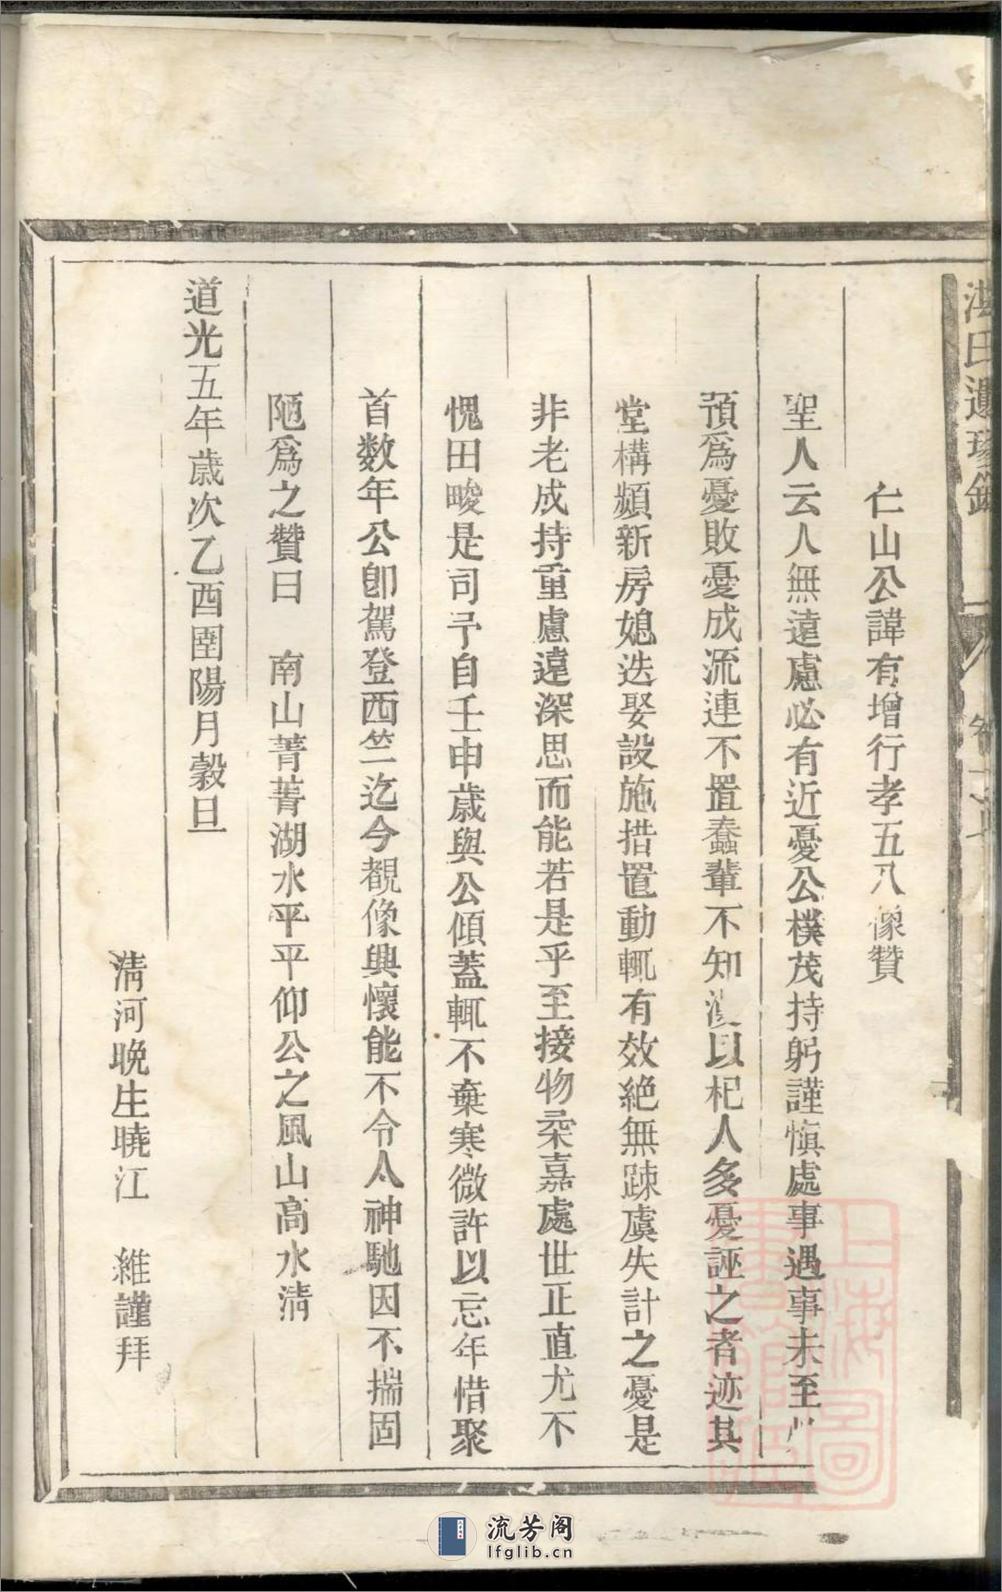 氏遺珍
仁山公諱有增行孝五八像贊
聖人云人無遠慮必有近憂公樸茂持躬謹慎處事遇事未至
預爲憂敗憂成流連不置蠢輩不知以杞人多憂誣之者迹其
堂構頻新房媳迭娶設施措置動輒有效絕無踈虞失計之憂是
非老成持重慮遠深思而能若是乎至接物柔嘉處世正直尤不
愧田畯是司予自壬申歲與公傾蓋輒不棄寒微許以忘年惜聚
首数年公卽駕登西竺迄今覩像興懷能不令人神馳因不揣固
陋爲之贊曰　南山菁菁湖水平平仰公之風山高水清
道光五年歲次乙酉圉陽月穀旦
清河晚生曉江　維謹拜
上海圖書館藏
流芳阁
lfglib.cn